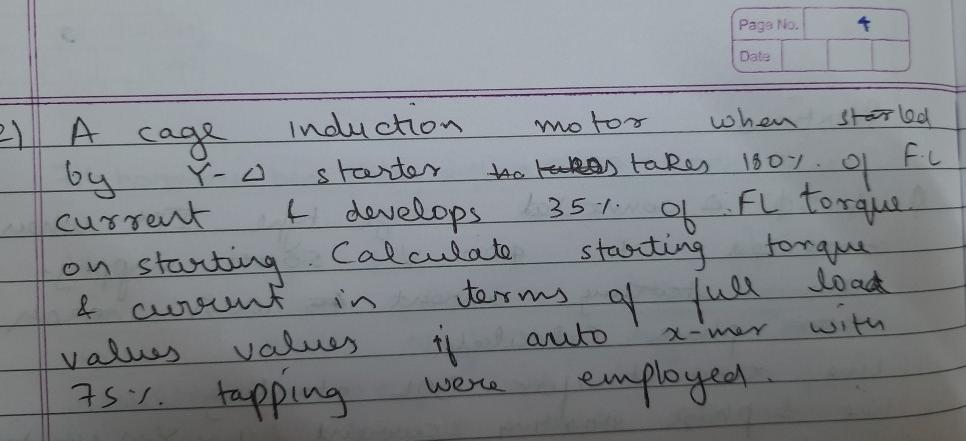 Page No. 4
Date
2) A cage induction motor when started
by Y-Δ starter takes 180%. of F.L
current & develops 35%. of FL torque
on starting. Calculate starting torque
& current in terms of full load
values values if auto x-mer with
75%. tapping were employed.